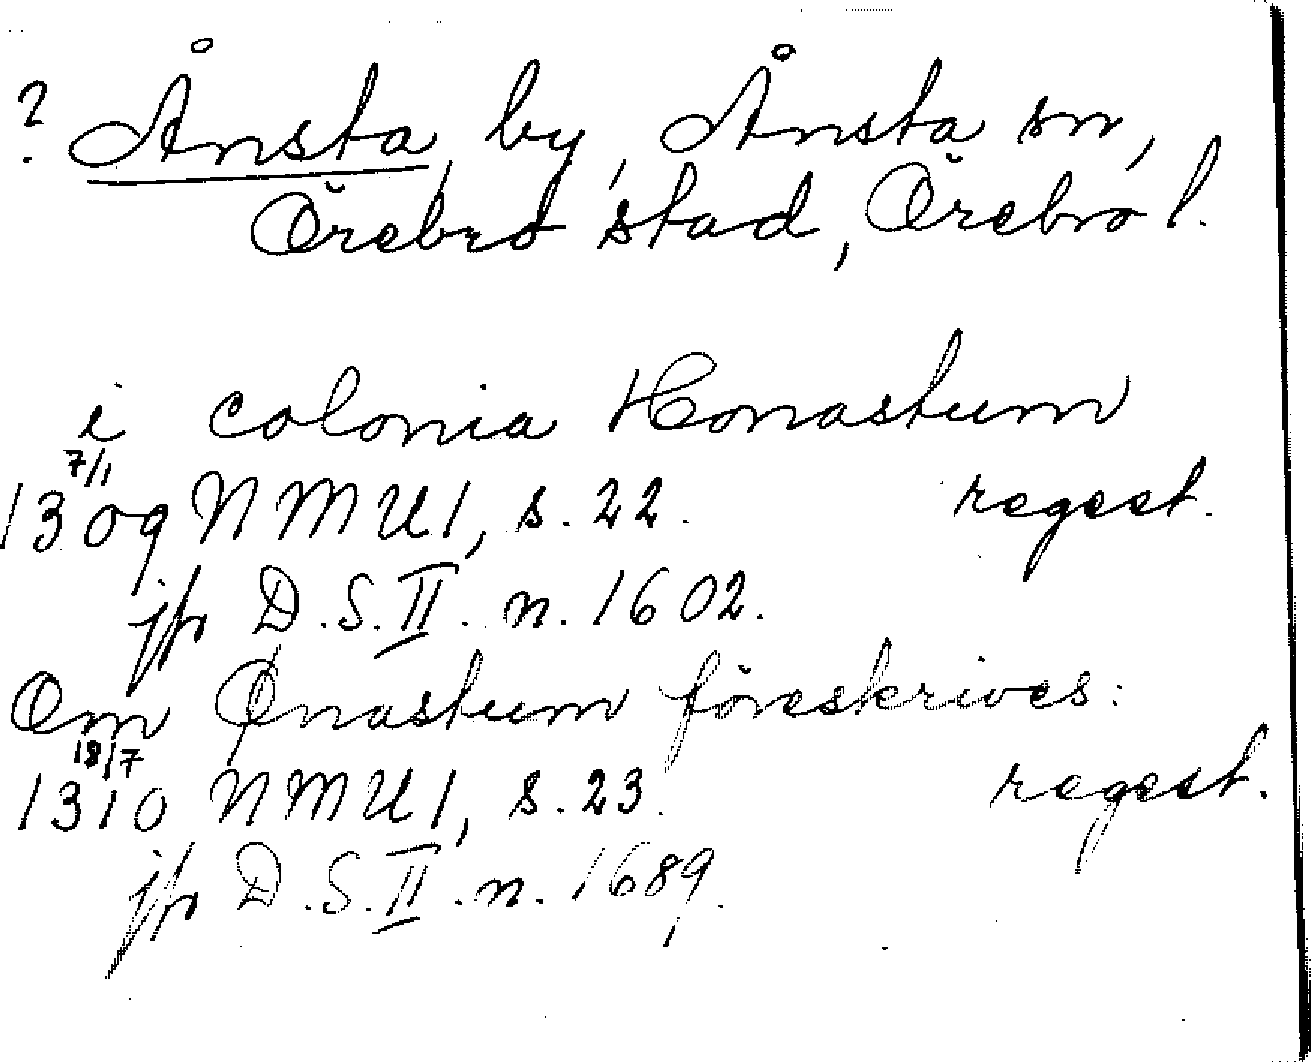 ? Ånsta, by, Ånsta sn,
Örebro stad, Örebro l.
i colonia Honastum
7/1
1309 NMU1, s. 22. regest.
jfr D.S. II. n. 1602.
Om Ønastum föreskrives:
18/7
1310 NMU1, s. 23. regest.
jfr D.S. II. n. 1689.